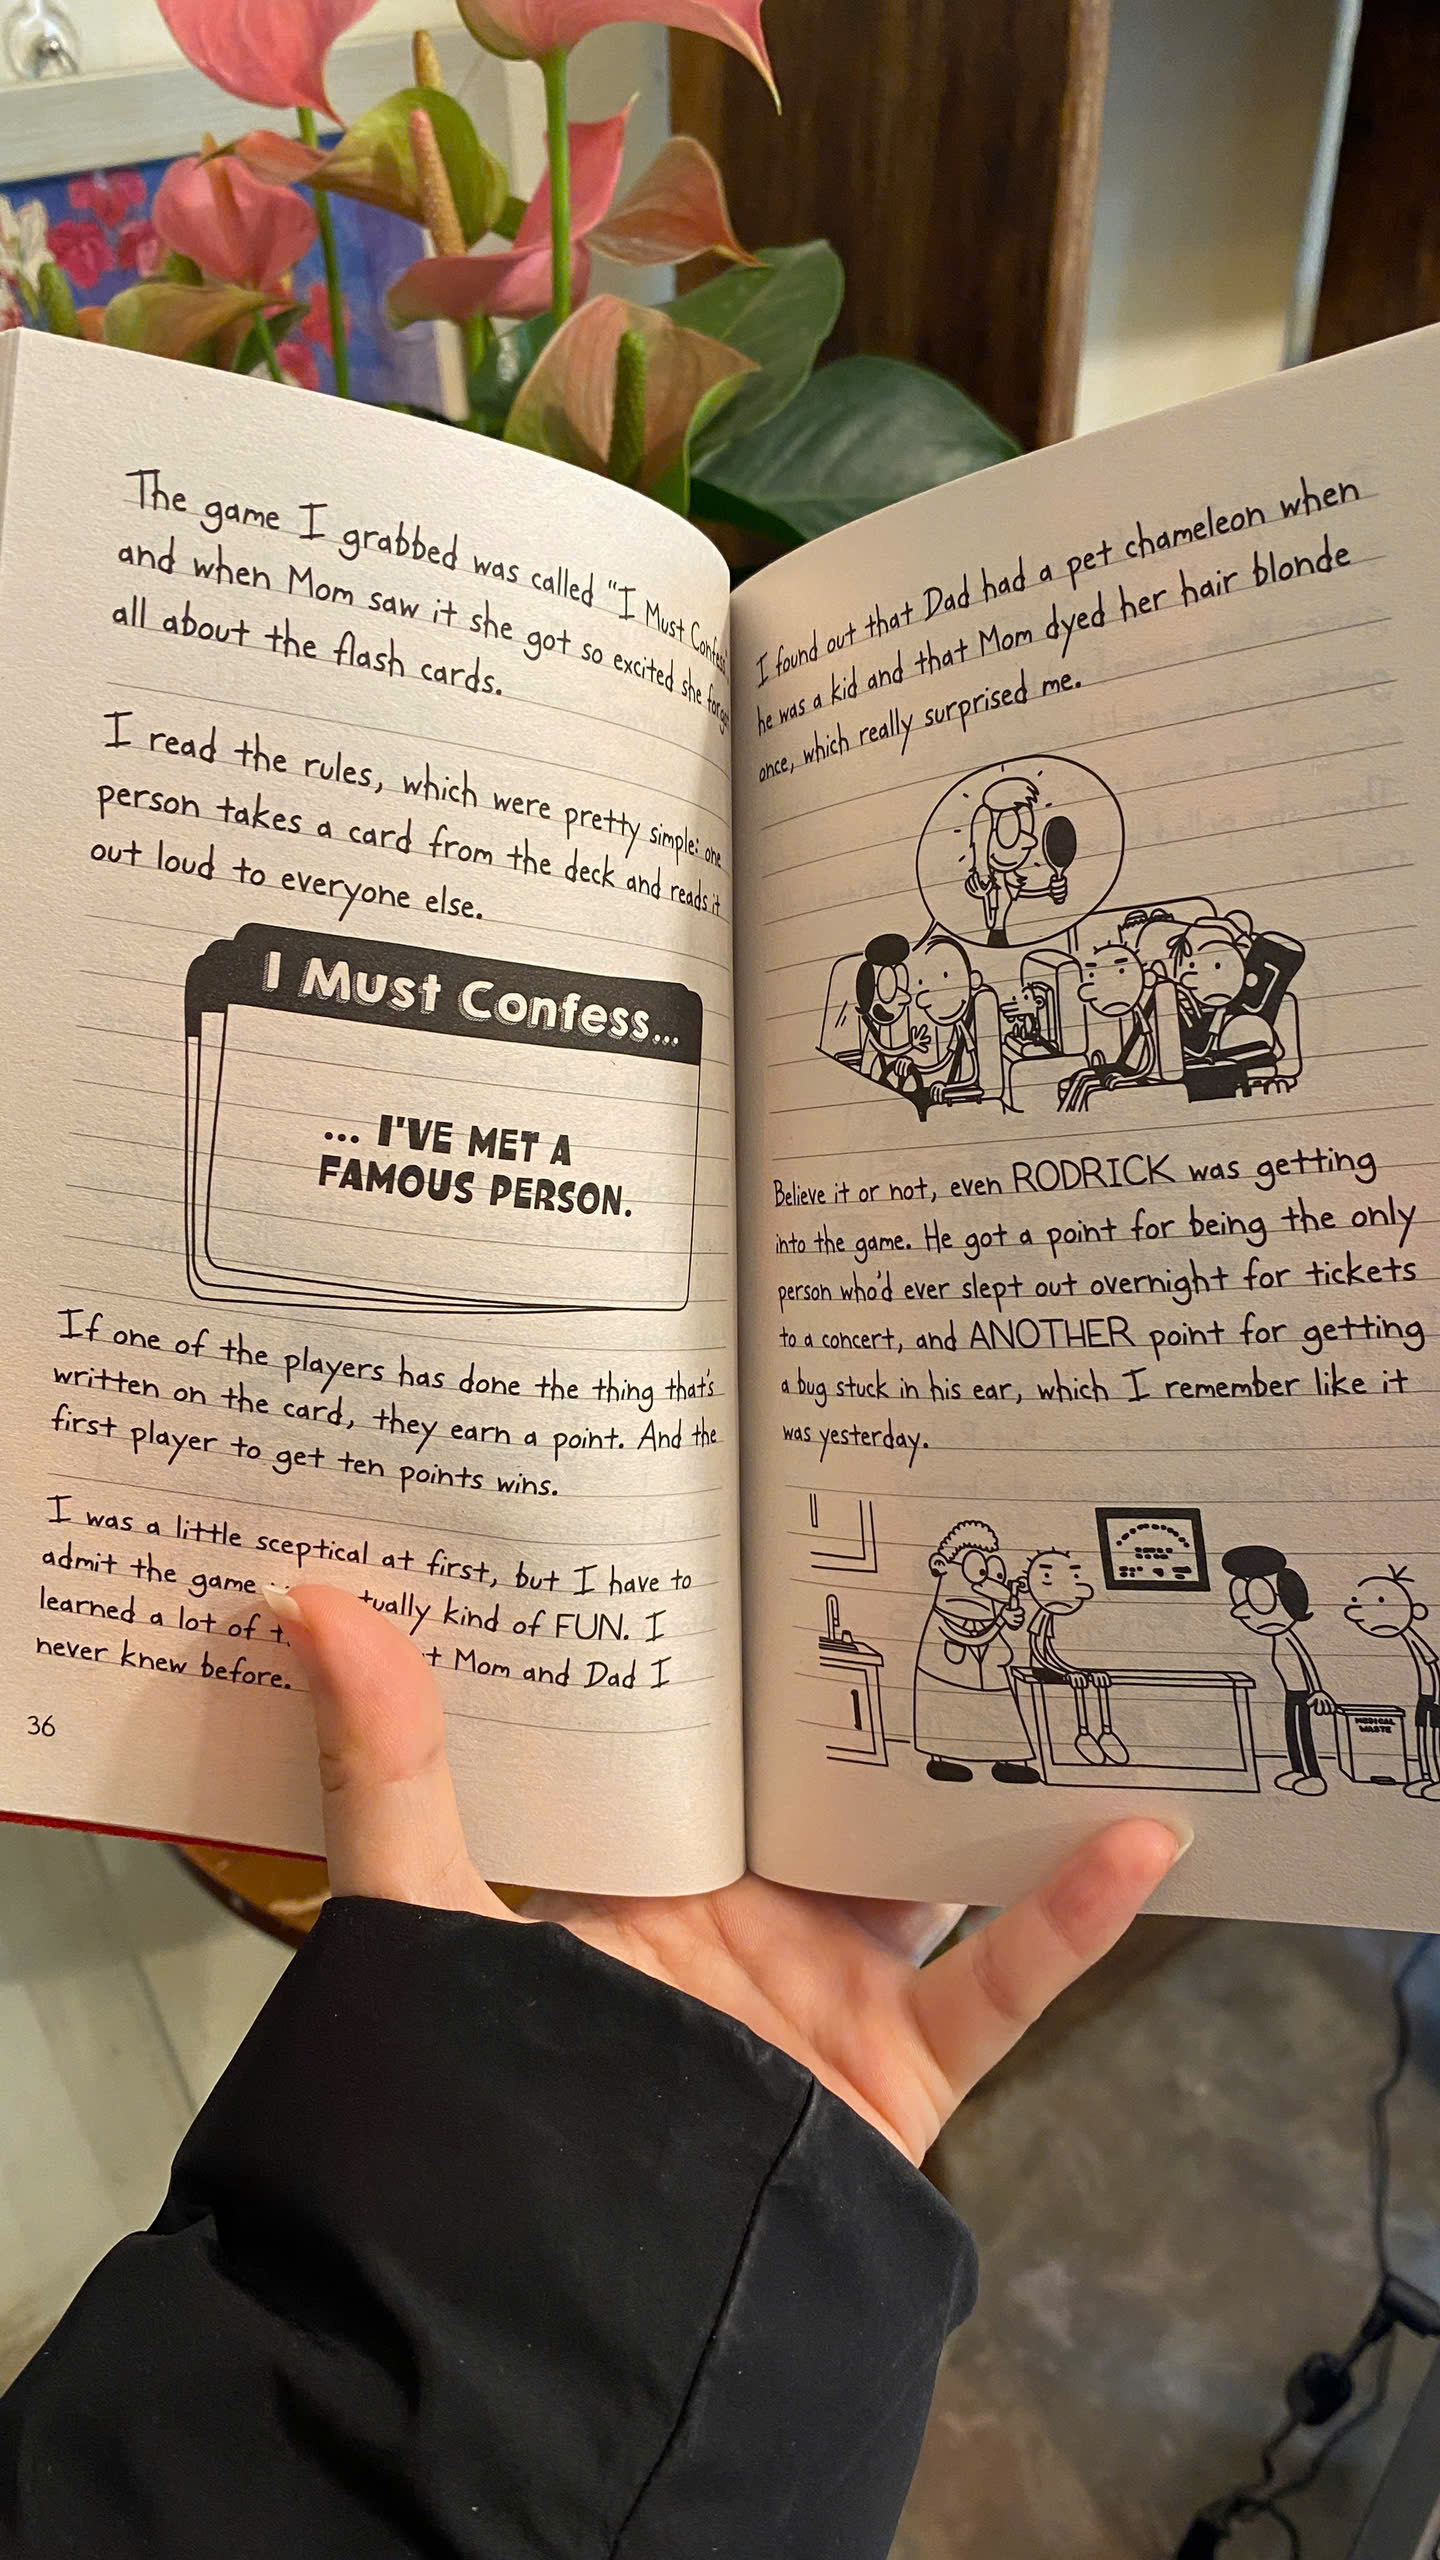 The game I grabbed was called "I Must Confess,"
and when Mom saw it she got so excited she forgot
all about the flash cards.
I read the rules, which were pretty simple: one
person takes a card from the deck and reads it
out loud to everyone else.
I Must Confess...
... I'VE MET A
FAMOUS PERSON.
If one of the players has done the thing that's
written on the card, they earn a point. And the
first player to get ten points wins.
I was a little sceptical at first, but I have to
admit the game kind of FUN. I
learned a lot of Mom and Dad I
never knew before.
36
I found out that Dad had a pet chameleon when
he was a kid and that Mom dyed her hair blonde
once, which really surprised me.
Believe it or not, even RODRICK was getting
into the game. He got a point for being the only
person who'd ever slept out overnight for tickets
to a concert, and ANOTHER point for getting
a bug stuck in his ear, which I remember like it
was yesterday.
MEDICAL
WASTE